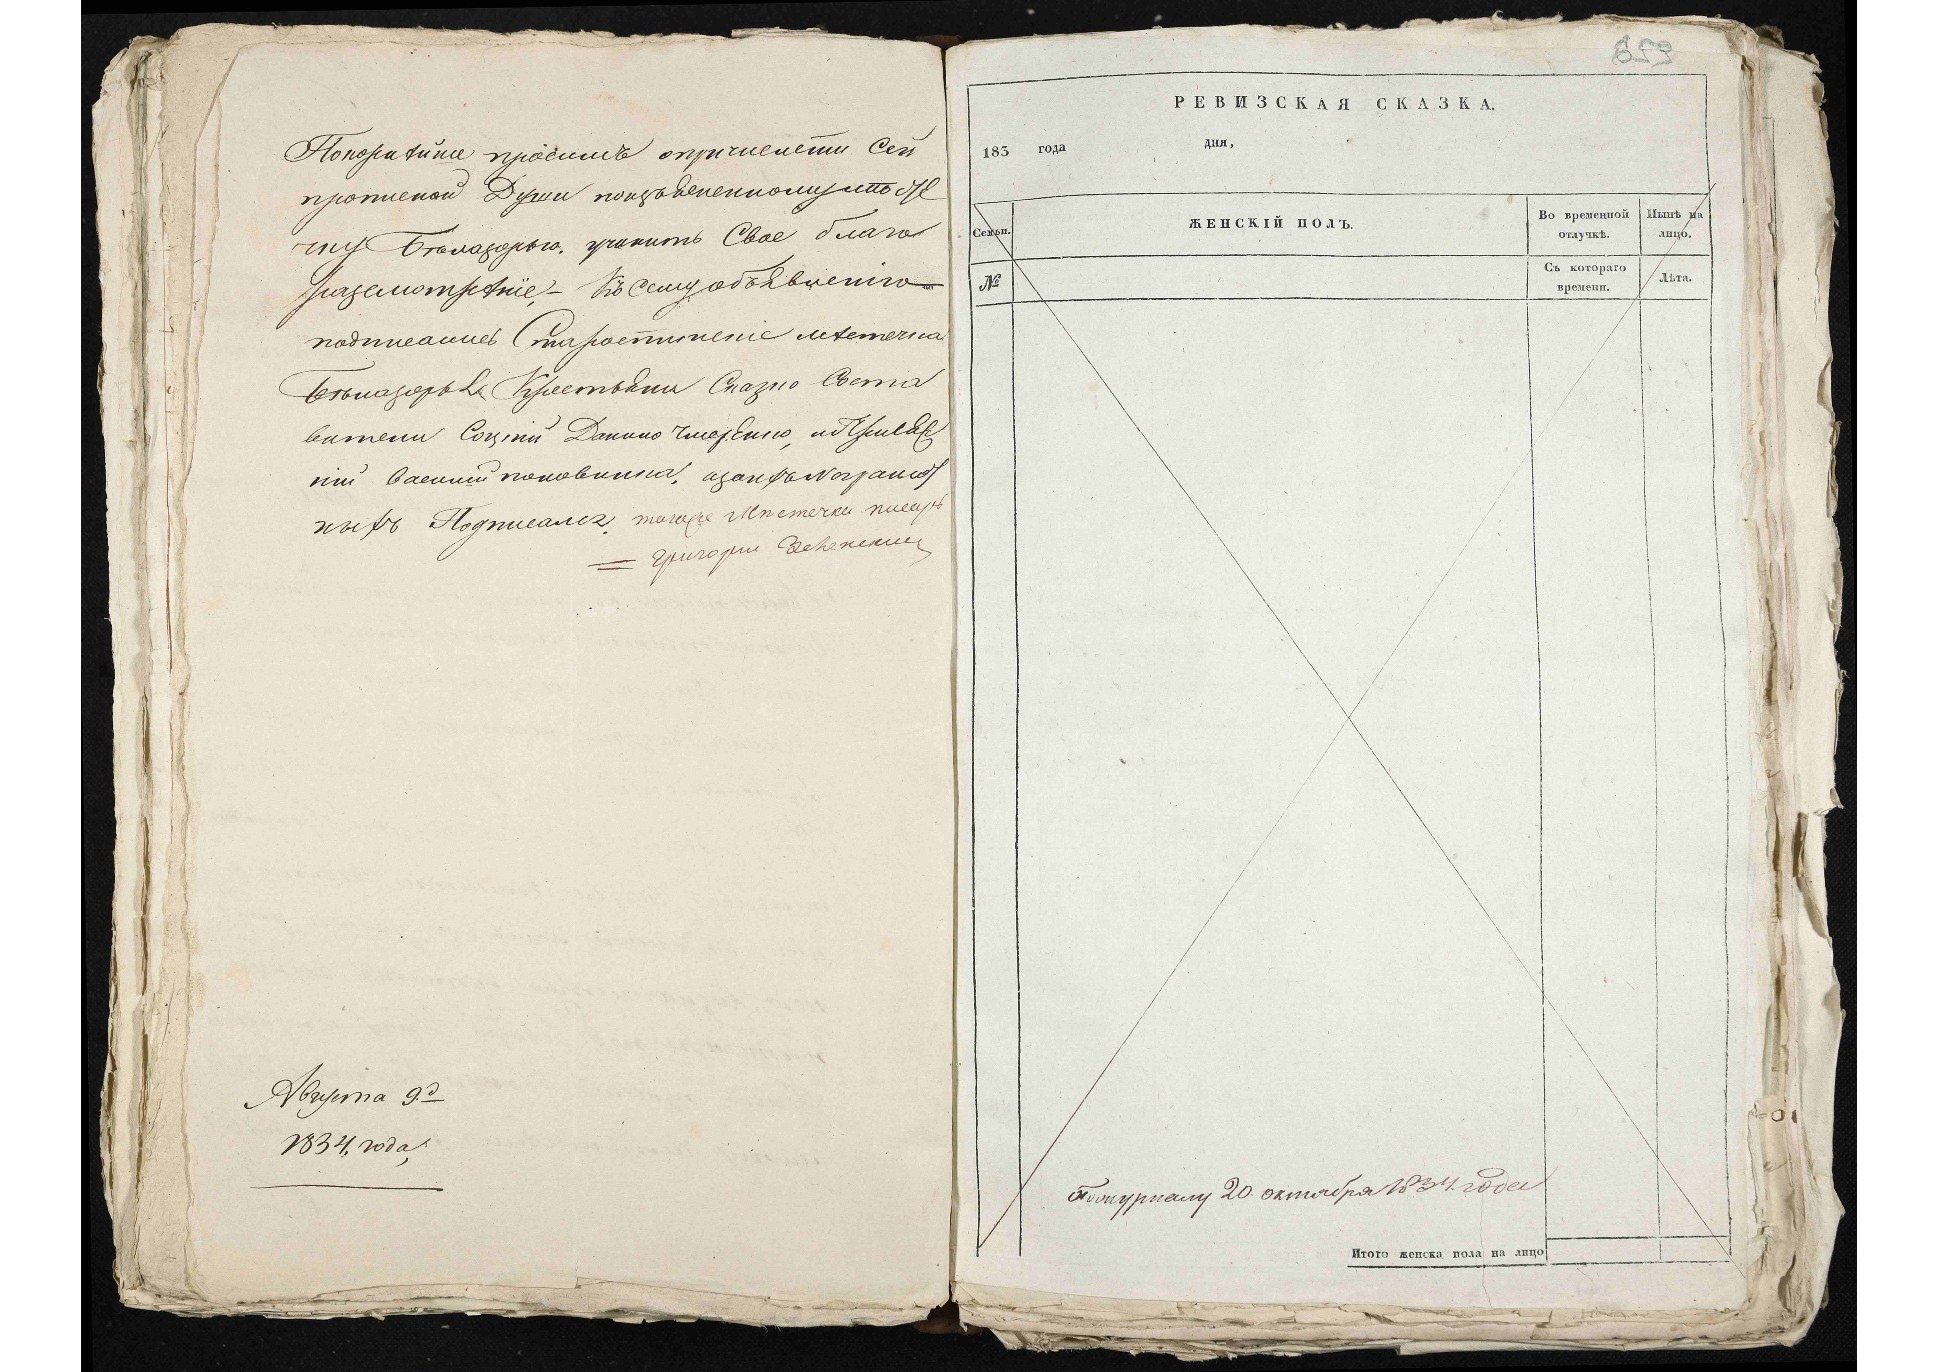 Покорнѣйше просимъ о причислети сей
прописной Души по
чку Бѣлазорью. учинить Свое благо
разсмотрѣніе,- Къ сему объявленію
подписались мѣстечка
Бѣлазорья Крестьяни Сказко Соста
вители Соцкій Данило и
кій Василий половинка, азанихъ Награмот
ныхъ Подписался, тогоже Мпстечка писарь
= Григорий
Августа 9.д
1834, года,
859
РЕВИЗСКАЯ СКАЗКА.
183 года дня,
Семьи. ЖЕНСКІЙ ПОЛЪ. Во временной отлучкѣ. Нынѣ на лицо.
№ Съ котораго времени. Лѣта.
По журналу 20. октября 1834. года
Итого женска пола на лицо